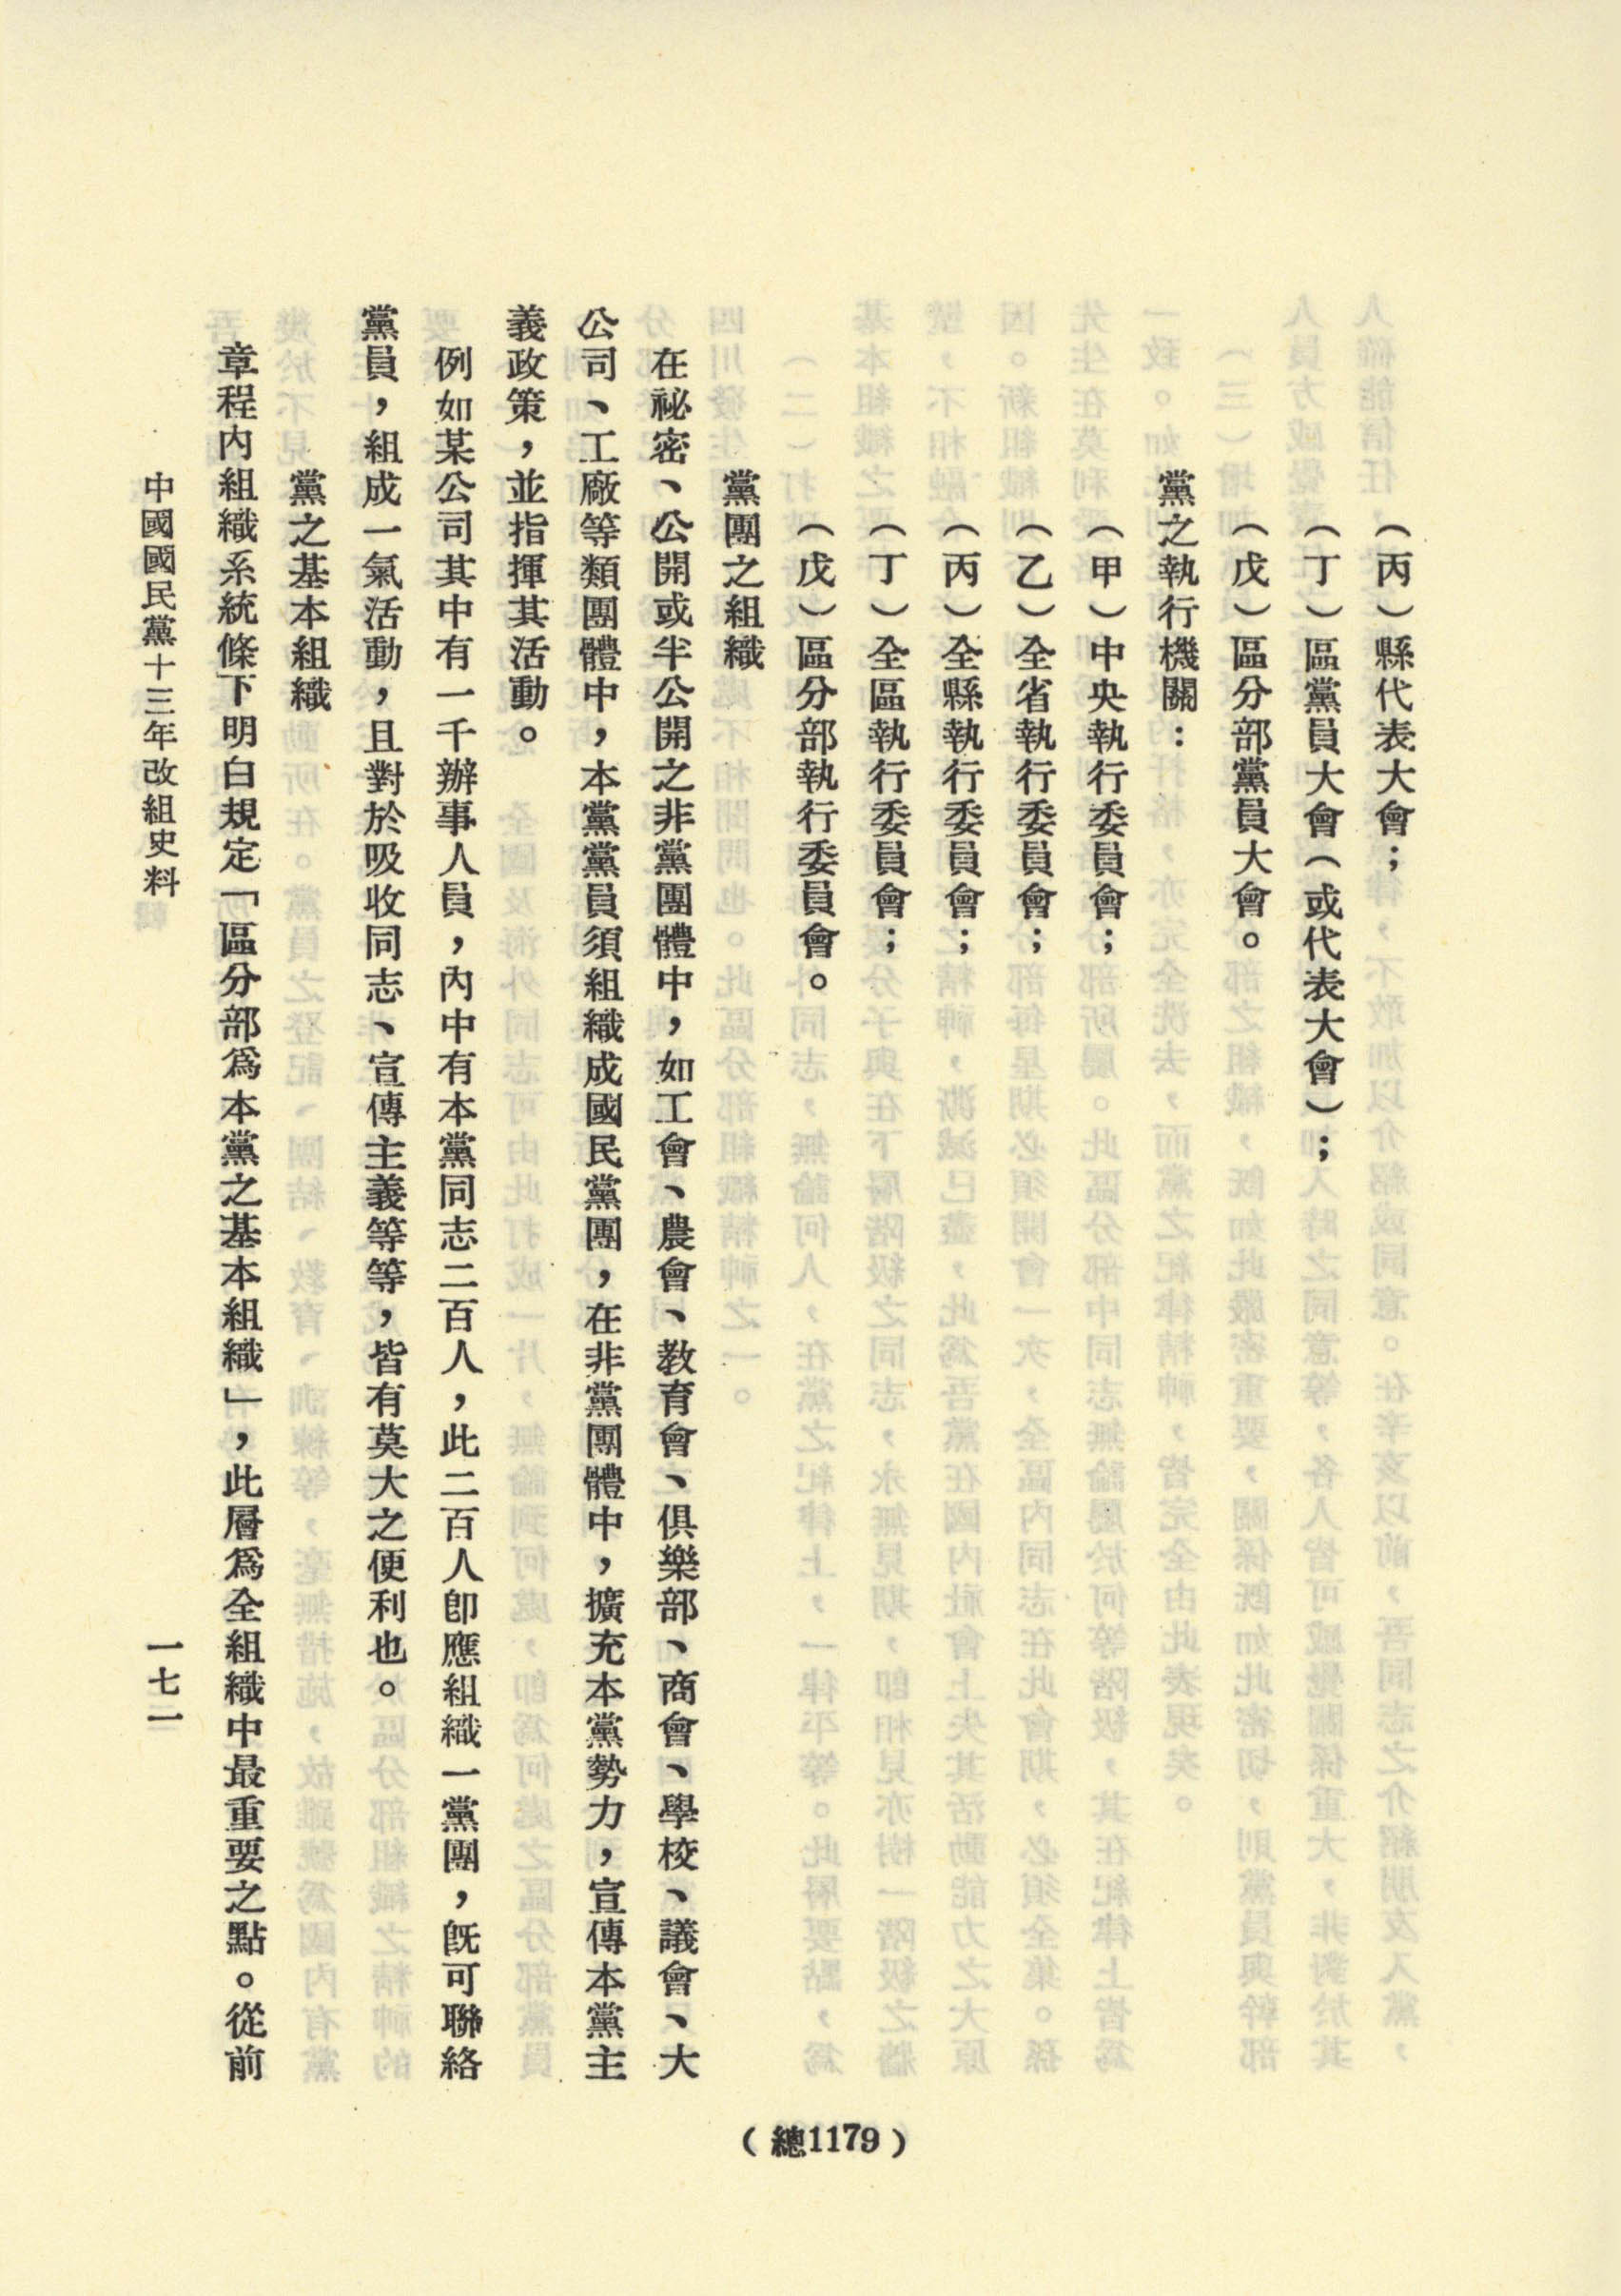 （丙）縣代表大會；
（丁）區黨員大會（或代表大會）；
（戊）區分部黨員大會。
黨之執行機關：
（甲）中央執行委員會；
（乙）全省執行委員會；
（丙）全縣執行委員會；
（丁）全區執行委員會；
（戊）區分部執行委員會。
黨團之組織
在祕密、公開或半公開之非黨團體中，如工會、農會、教育會、俱樂部、商會、學校、議會、大
公司、工廠等類團體中，本黨黨員須組織成國民黨團，在非黨團體中，擴充本黨勢力，宣傳本黨主
義政策，並指揮其活動。
例如某公司其中有一千辦事人員，內中有本黨同志二百人，此二百人卽應組織一黨團，旣可聯絡
黨員，組成一氣活動，且對於吸收同志、宣傳主義等等，皆有莫大之便利也。
黨之基本組織
章程內組織系統條下明白規定「區分部爲本黨之基本組織」，此層爲全組織中最重要之點。從前
中國國民黨十三年改組史料
一七一
（總1179）